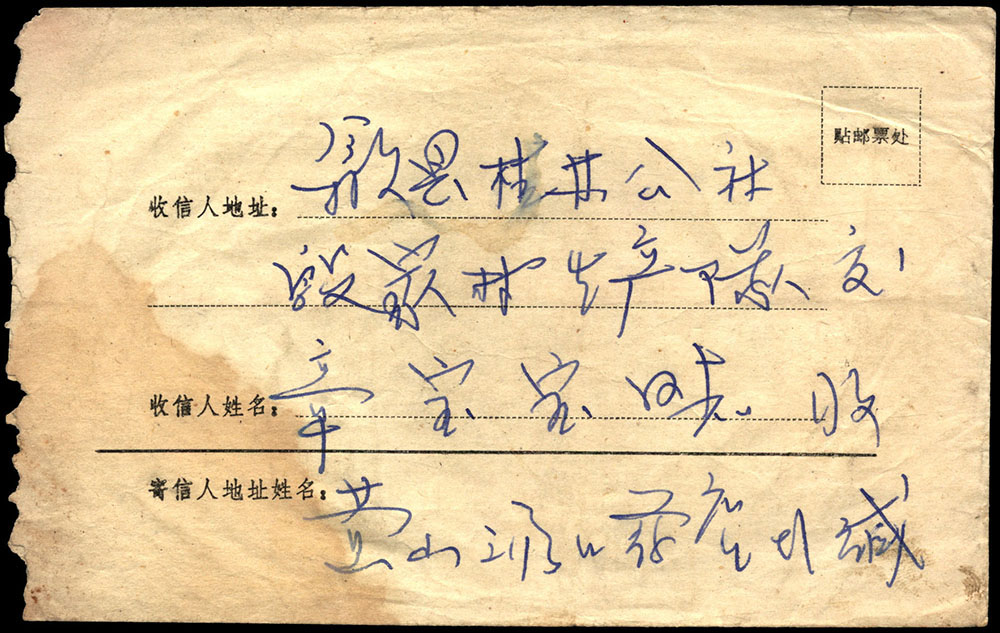 贴邮票处
收信人地址：歙县桂林公社
殷家村生产队交
收信人姓名：章宝宝 收
寄信人地址姓名：黄山 缄